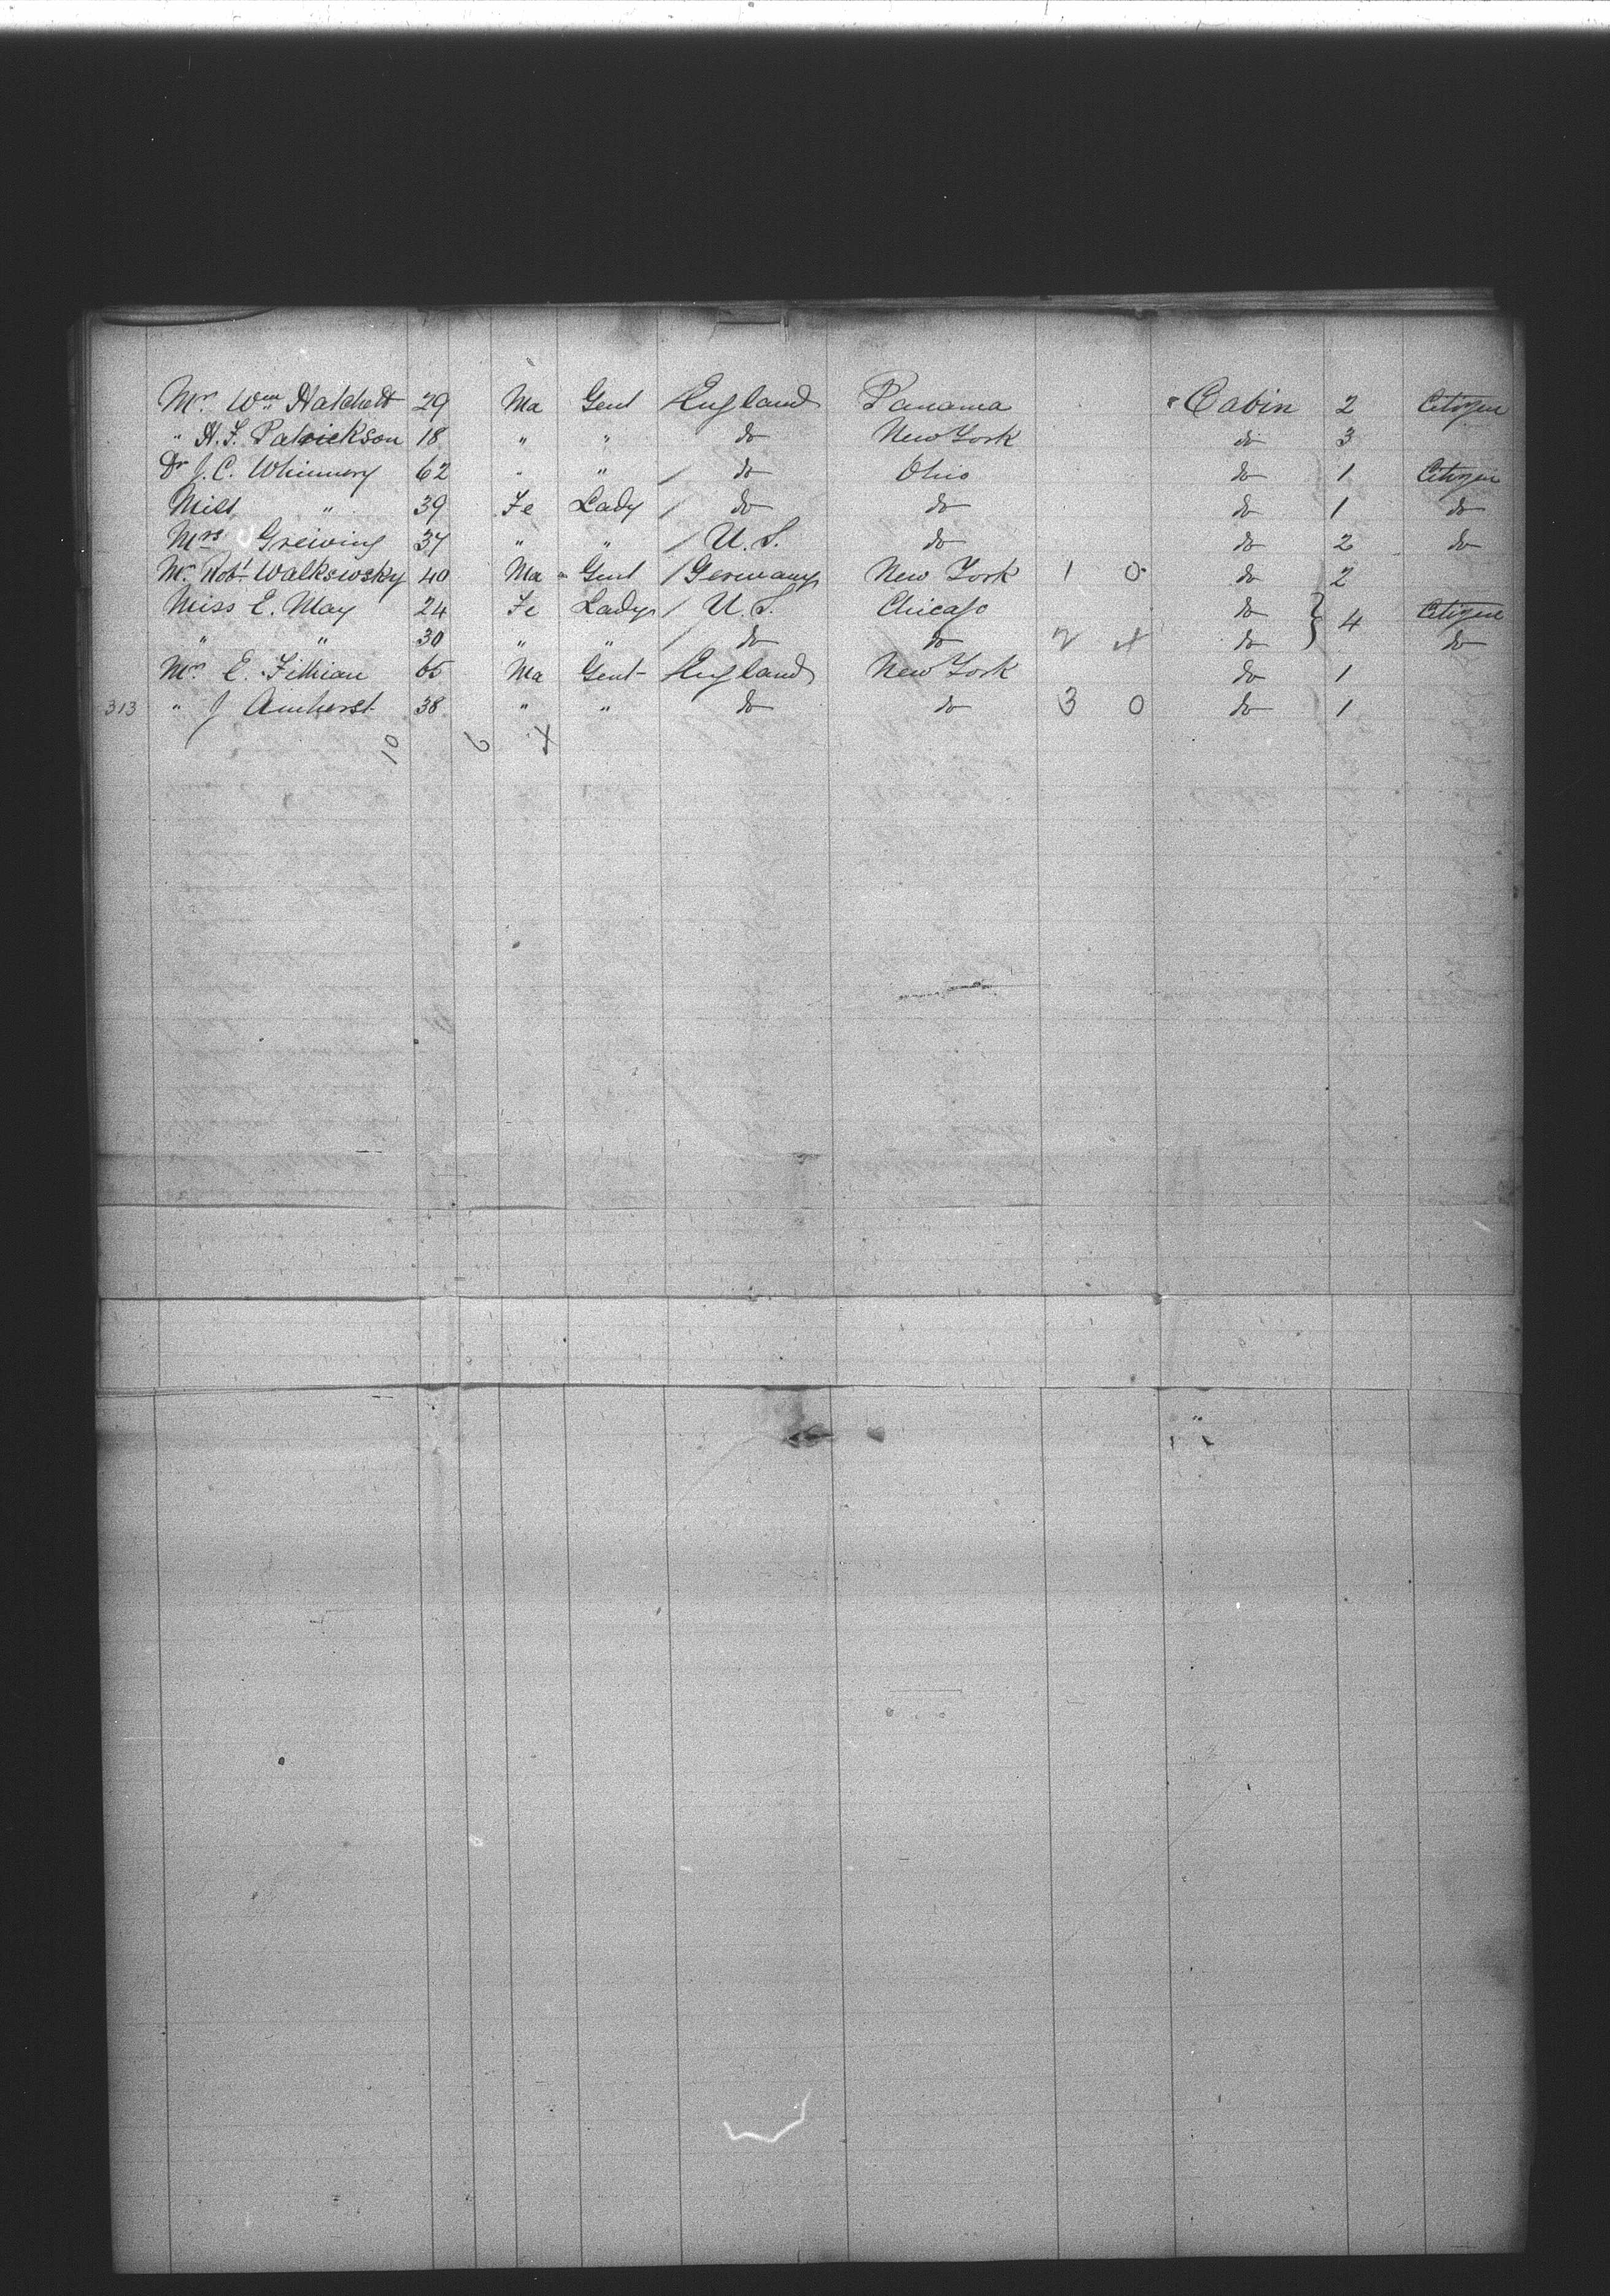 Mr. Wm Hatchett 29 Ma Gent England Panama Cabin 2 Citizen
" H. F. Patrickson 18 " " do New York do 3
Dr J. C. Whinnery 62 " " / do Ohio do 1 Citizen
Miss " 39 Fe Lady / do do do 1 do
Mrs Greiving 37 " " / U. S. do do 2 do
Mr. Robt Walksewsky 40 Ma " Gent / Germany New York 1 0 do 2
Miss E. May 24 Fe Lady / U. S. Chicago do } 4 Citizen
" " 30 " " / do do 2 4 do do
Mr E. Fithian 65 Ma Gent England New York do 1
313 " J Amherst 38 " " do do 3 0 do 1
10 6 4